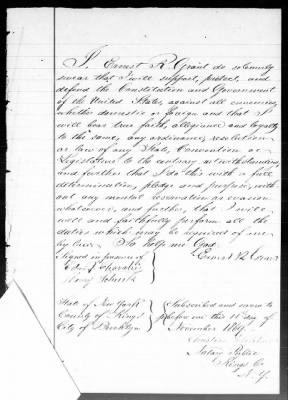 I, Ernest R. Grant do solemnly
swear that I will support, protect, and
defend the Constitution and Government
of the United States, against all enemies,
whether domestic or foreign and that I
will bear true faith, allegiance and loyalty
to the same, any ordinance, resolution
or law of any State, Convention or
Legislature to the contrary notwithstanding
and further that I do this with a full
determination, pledge and purpose, with
out any mental reservation or evasion
whatsoever, and further, that I will
well and faithfully perform all the
duties which may be required of me
by law. So help me God.
Signed in presence of
Ernest R.
State of New York
County of Kings
City of Brooklyn
Subscribed and sworn to
before me this 11 day of
November 1869.
Notary Public
Kings Co
N.Y.